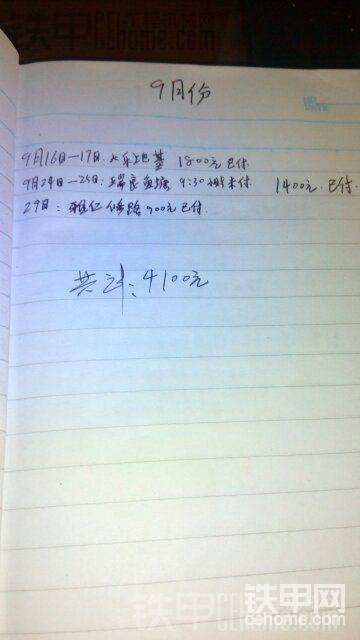 铁甲 工程机械网
cehome.com
9月份
NO.
DATE
9月16日—17日: 地基 1800元 已付
9月24日—25日: 瑞良鱼塘 9:30 未付 1400元 已付
29日: 雅仁修路 900元 已付
共计: 4100元
铁甲网
cehome.com